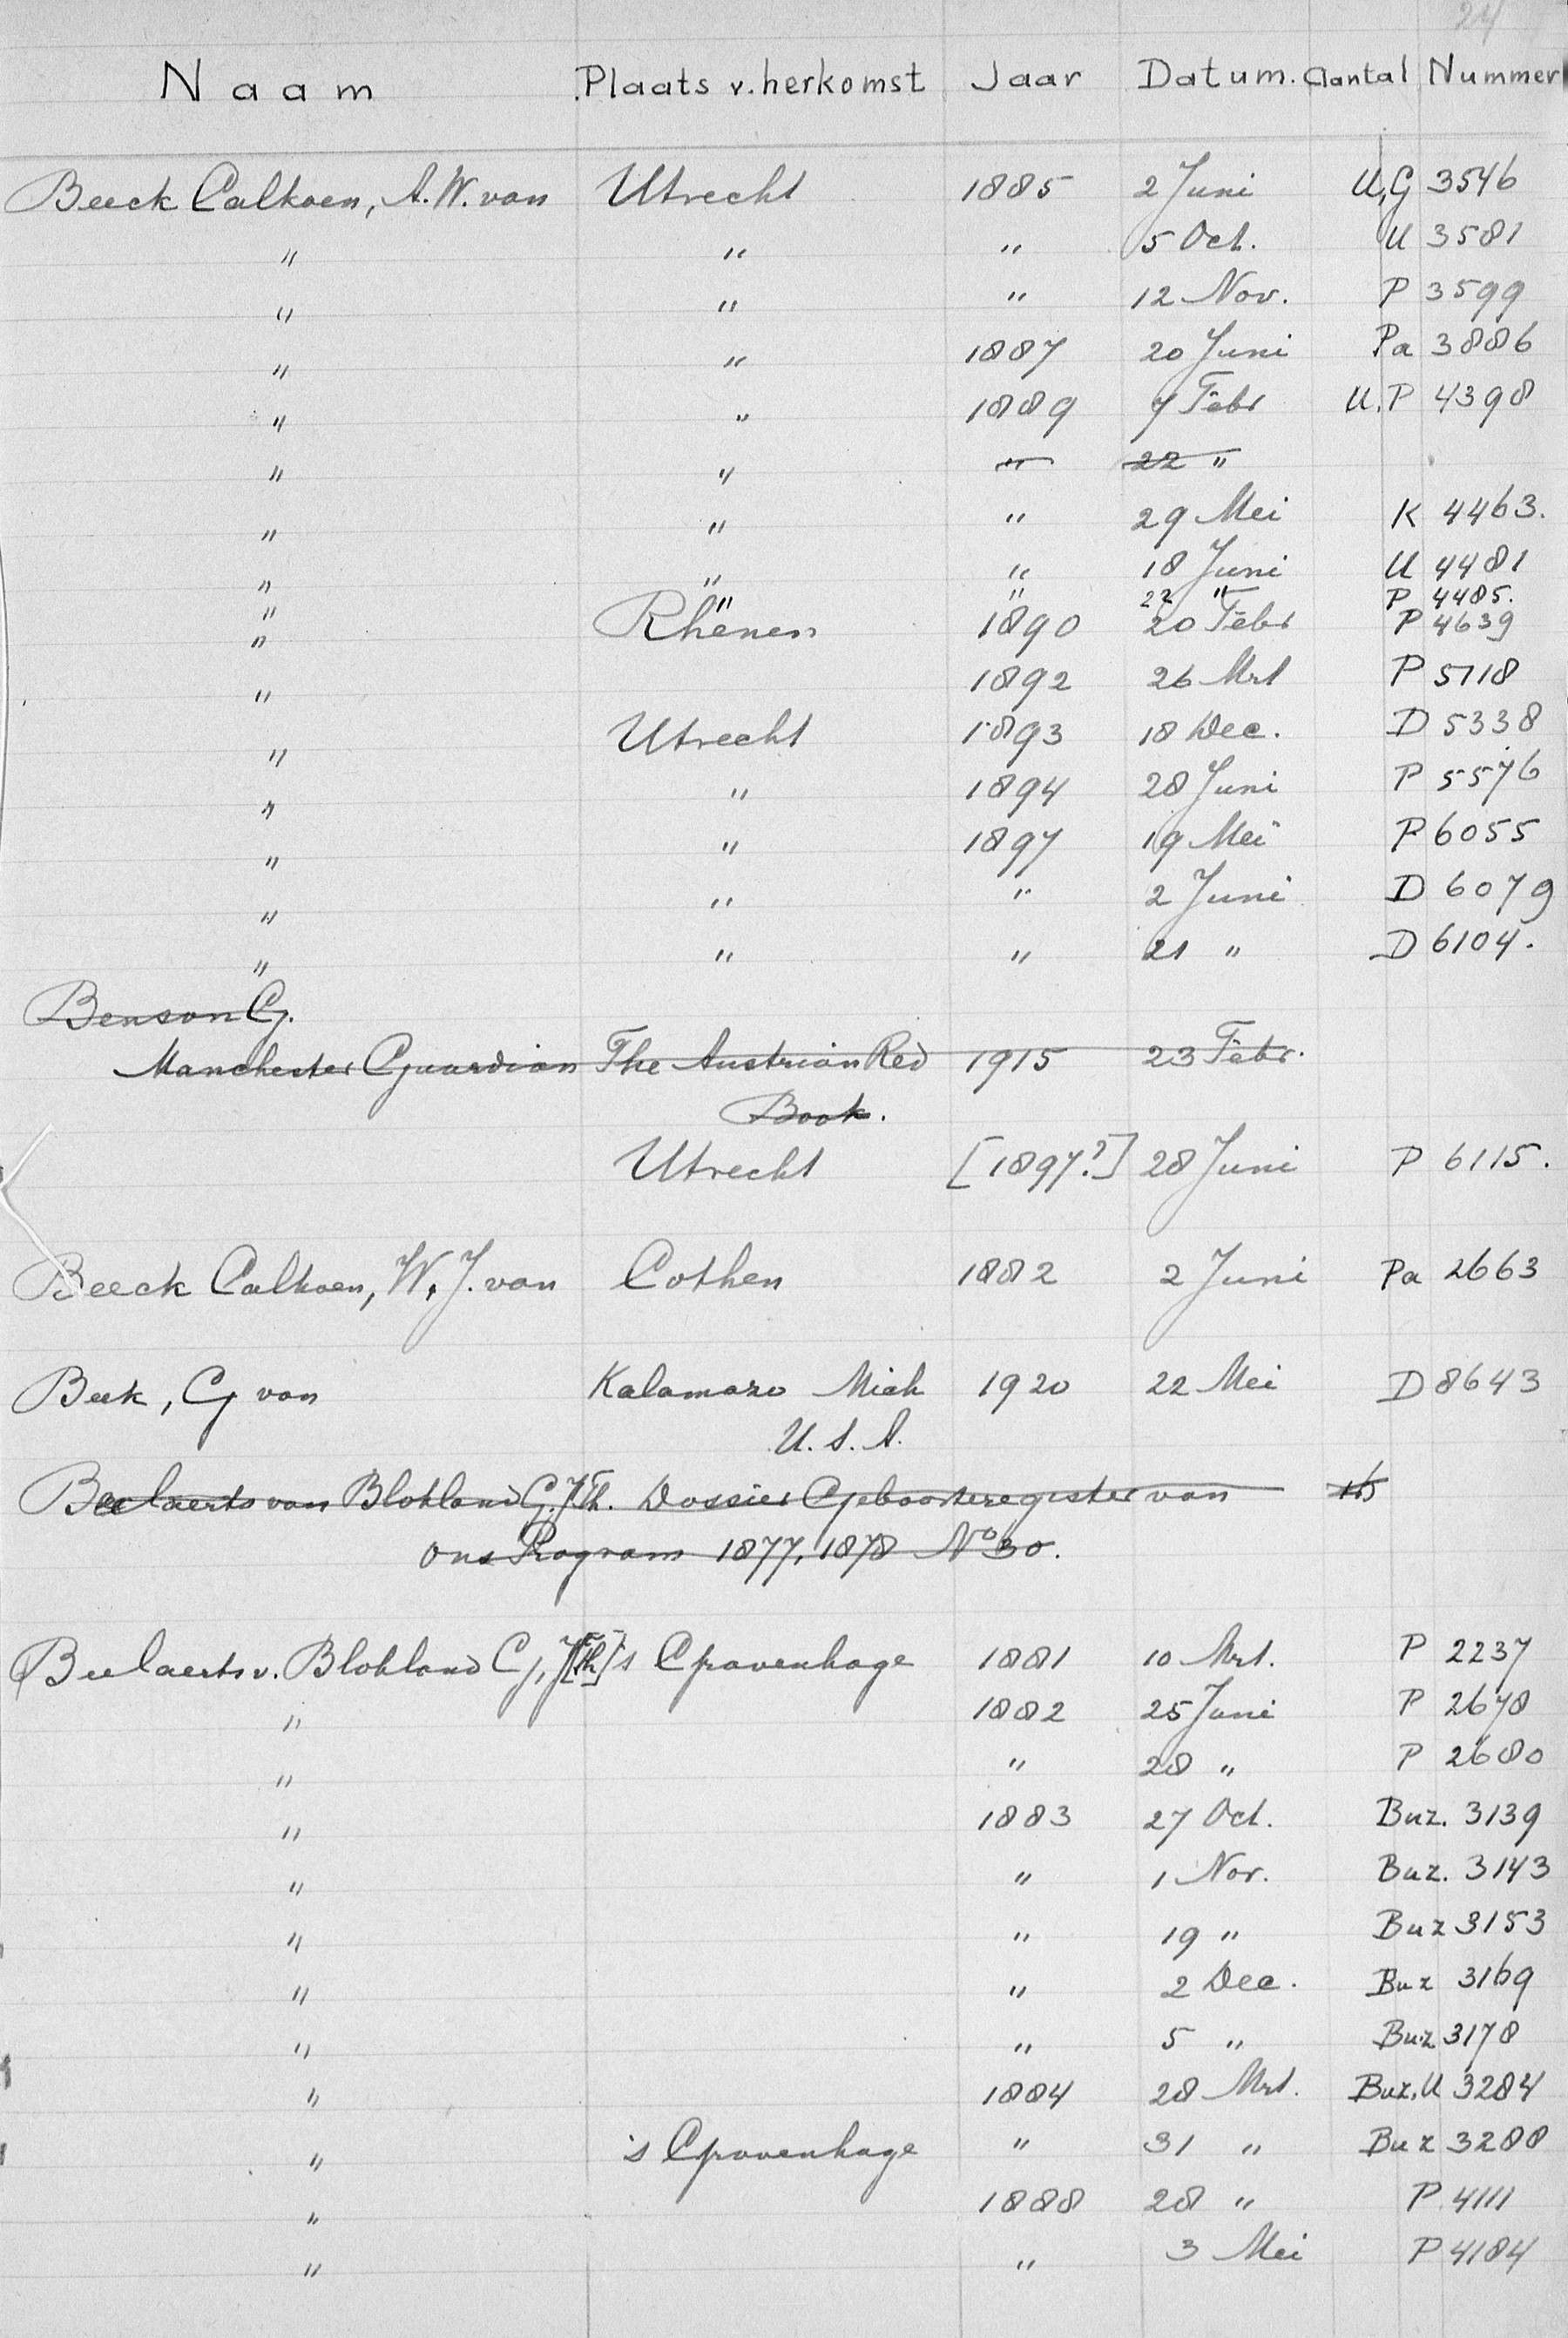 24
Naam Plaats v. herkomst Jaar Datum. Aantal Nummer
Beeck Calkoen, A.W. van Utrecht 1885 2 Juni U,G 3546
" " " 5 Oct. U 3581
" " " 12 Nov. P 3599
" " 1887 20 Juni Pa 3886
" " 1889 7 Febr U.P 4398
" " " 22 "
" " " 29 Mei K 4463.
" " " 18 Juni U 4481
" " " 22 " P 4485.
" Rhenen 1890 20 Febr P 4639
" 1892 26 Mrt P 5718
" Utrecht 1893 18 Dec. D 5338
" " 1894 28 Juni P 5576
" " 1897 19 Mei P 6055
" " " 2 Juni D 6079
" " " 21 " D 6104.
Benson G.
Manchester Guardian The Austrian Red 1915 23 Febr.
Book.
Utrecht [1897?] 28 Juni P 6115.
Beeck Calkoen, W.J. van Cothen 1882 2 Juni Pa 2663
Beek, G van Kalamazo Mich 1920 22 Mei D 8643
U.S.A.
Beelaerts van Blokland G.J.Th. Dossier Geboorteregister van
ons Program 1877, 1878 No 30.
Beelaerts v. Blokland G.J.[Th.] 's Gravenhage 1881 10 Mrt. P 2237
" 1882 25 Juni P 2678
" " 28 " P 2680
" 1883 27 Oct. Buz. 3139
" " 1 Nov. Buz. 3143
" " 19 " Buz 3153
" " 2 Dec. Buz 3169
" " 5 " Buz 3178
" 1884 28 Mrt. Buz. U 3284
" 's Gravenhage " 31 " Buz 3288
" 1888 28 " P 4111
" " 3 Mei P 4184